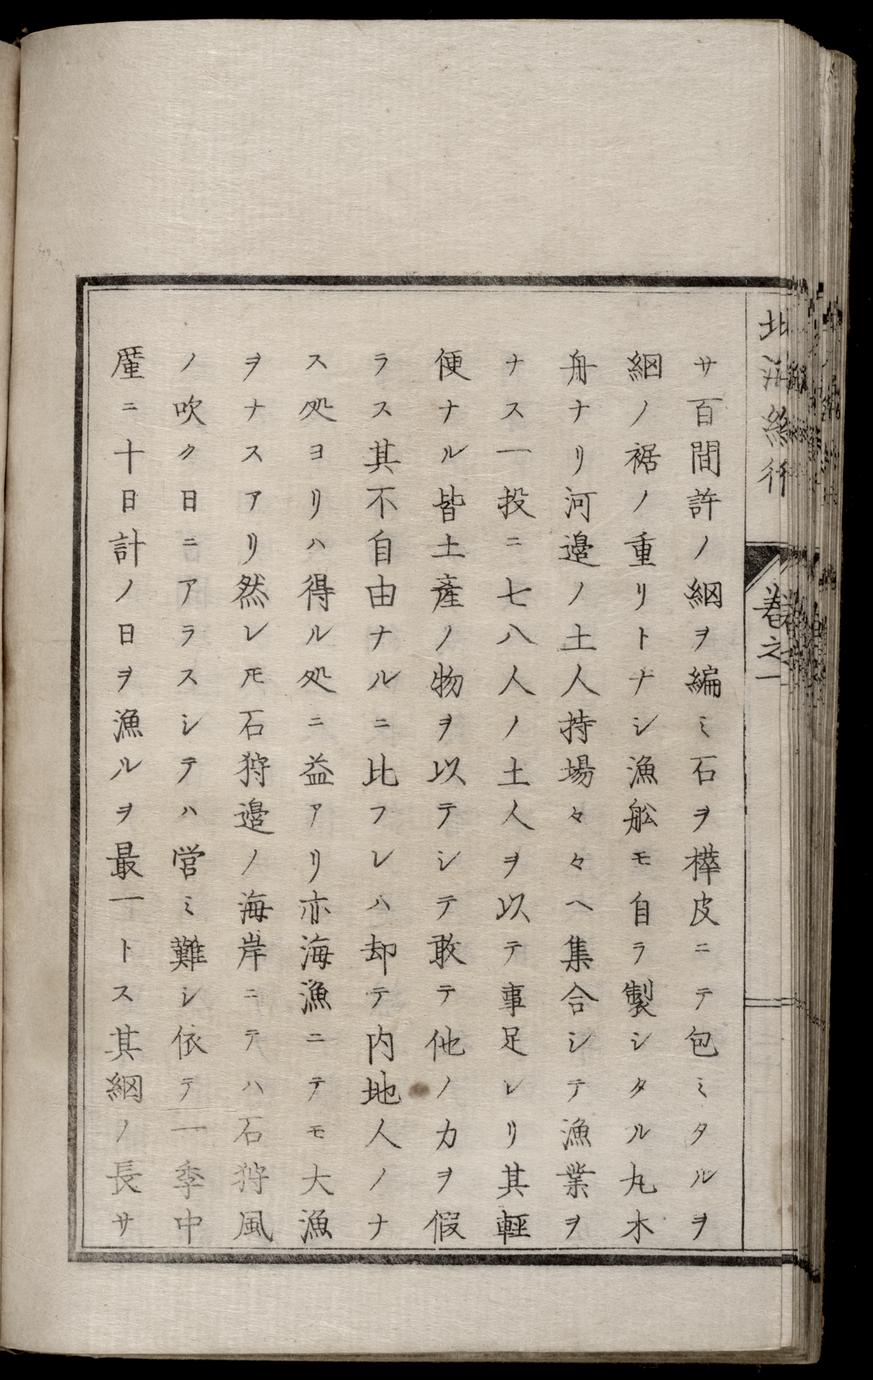 サ百間許ノ綱ヲ編ミ石ヲ樺皮ニテ包ミタルヲ
綱ノ裾ノ重リトナシ漁舩モ自ラ製シタル丸木
舟ナリ河邉ノ土人持場々々ヘ集合シテ漁業ヲ
ナス一投ニ七八人ノ土人ヲ以テ事足レリ其軽
便ナル皆土產ノ物ヲ以テシテ敢テ他ノカヲ假
ラス其不自由ナルニ比フレハ却テ内地人ノナ
ス処ヨリハ得ル処ニ益アリ亦海漁ニテモ大漁
ヲナスアリ然レ𪜈石狩邉ノ海岸ニテハ石狩風
ノ吹ク日ニアラスシテハ営ミ難シ依テ一季中
厪ニ十日計ノ日ヲ漁ルヲ最一トス其綱ノ長サ
北海
巻之一